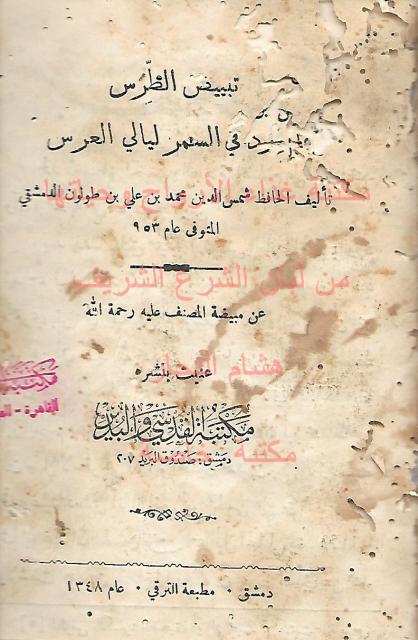 تبييض الطِّرس
في السمر ليالي العرس
تأليف الحافظ شمس الدين محمد بن علي بن طولون الدمشقي
المتوفى عام ٩٥٣
من لسان الشرع الشريف
عن مبيضة المصنف عليه رحمة الله
هشام النجار
عنيت بنشره
مكتبة القدسي والبدير
دمشق: صندوق البريد ٢٠٧
مكتبة
القاهرة
دمشق - مطبعة الترقي - عام ١٣٤٨